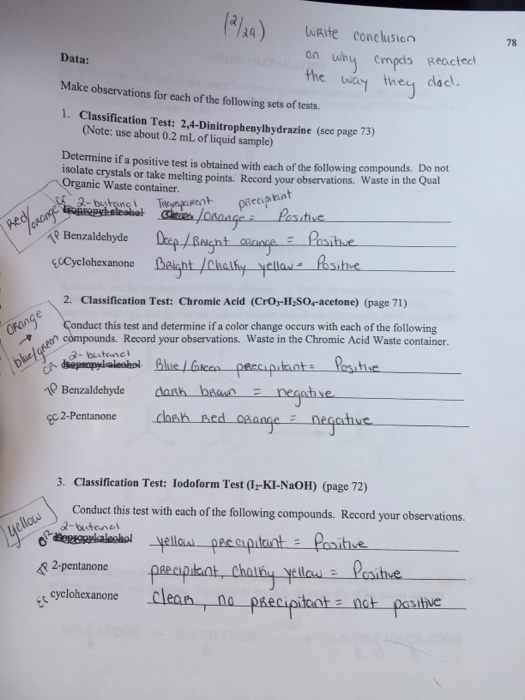 (2/29)
Write conclusion
on why cmpds Reacted
the way they did.
78
Data:
Make observations for each of the following sets of tests.
1. Classification Test: 2,4-Dinitrophenylhydrazine (see page 73)
(Note: use about 0.2 mL of liquid sample)
Determine if a positive test is obtained with each of the following compounds. Do not
isolate crystals or take melting points. Record your observations. Waste in the Qual
Organic Waste container.
Red/orange
2-butanol Transparent precipitant
Isopropyl alcohol /Orange = Positive
TP Benzaldehyde Deep / Bright orange = Positive
EC Cyclohexanone Bright / Chalky yellow = Positive
2. Classification Test: Chromic Acid (CrO3-H2SO4-acetone) (page 71)
Orange
→
blue/green
Conduct this test and determine if a color change occurs with each of the following
compounds. Record your observations. Waste in the Chromic Acid Waste container.
2-butanol
CR Isopropyl alcohol Blue / Green precipitant = Positive
TP Benzaldehyde dark brown = negative
EC 2-Pentanone dark Red orange = negative
3. Classification Test: Iodoform Test (I2-KI-NaOH) (page 72)
Yellow
Conduct this test with each of the following compounds. Record your observations.
2-butanol
CR Isopropyl alcohol yellow precipitant = Positive
TP 2-pentanone precipitant, chalky yellow = Positive
EC cyclohexanone clear, no precipitant = not positive